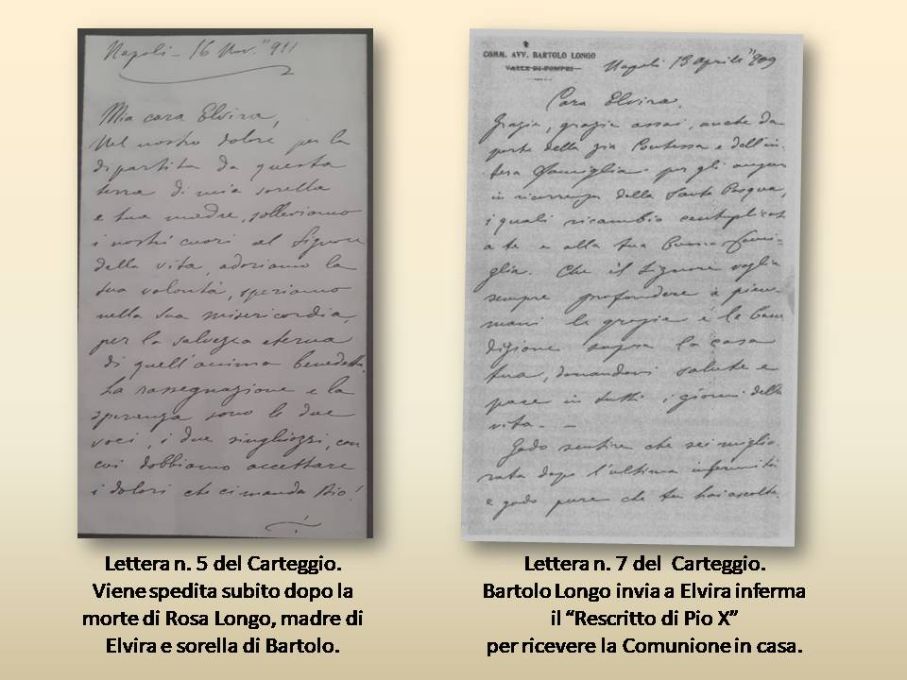 Napoli - 16 Nov. 911
Mia cara Elvira,
Nel nostro dolore per la
dipartita da questa
terra di mia sorella
e tua madre, solleviamo
i nostri cuori al Signore
della vita, adoriamo la
sua volontà, speriamo
nella sua misericordia,
per la salvezza eterna
di quell'anima benedetta.
La rassegnazione e la
speranza sono le due
voci, i due singhiozzi, con
cui dobbiamo accettare
i dolori che ci manda Dio!
Lettera n. 5 del Carteggio.
Viene spedita subito dopo la
morte di Rosa Longo, madre di
Elvira e sorella di Bartolo.
COMM. AVV. BARTOLO LONGO
VALLE DI POMPEI
Napoli 13 aprile 909
Cara Elvira,
Grazie, grazie assai, anche da
parte della zia Contessa e dell'in-
tera famiglia per gli auguri
in ricorrenza della Santa Pasqua,
i quali ricambio centuplicati
a te e alla tua buona fami-
glia. Che il Signore voglia
sempre profondere a piene
mani le grazie e le bene
dizione sopra la casa
tua, donandovi salute e
pace in tutti i giorni della
vita. -
Godo sentire che sei miglio
rata dopo l'ultima infermità
e godo pure che tu hai ascolta
Lettera n. 7 del Carteggio.
Bartolo Longo invia a Elvira inferma
il “Rescritto di Pio X”
per ricevere la Comunione in casa.